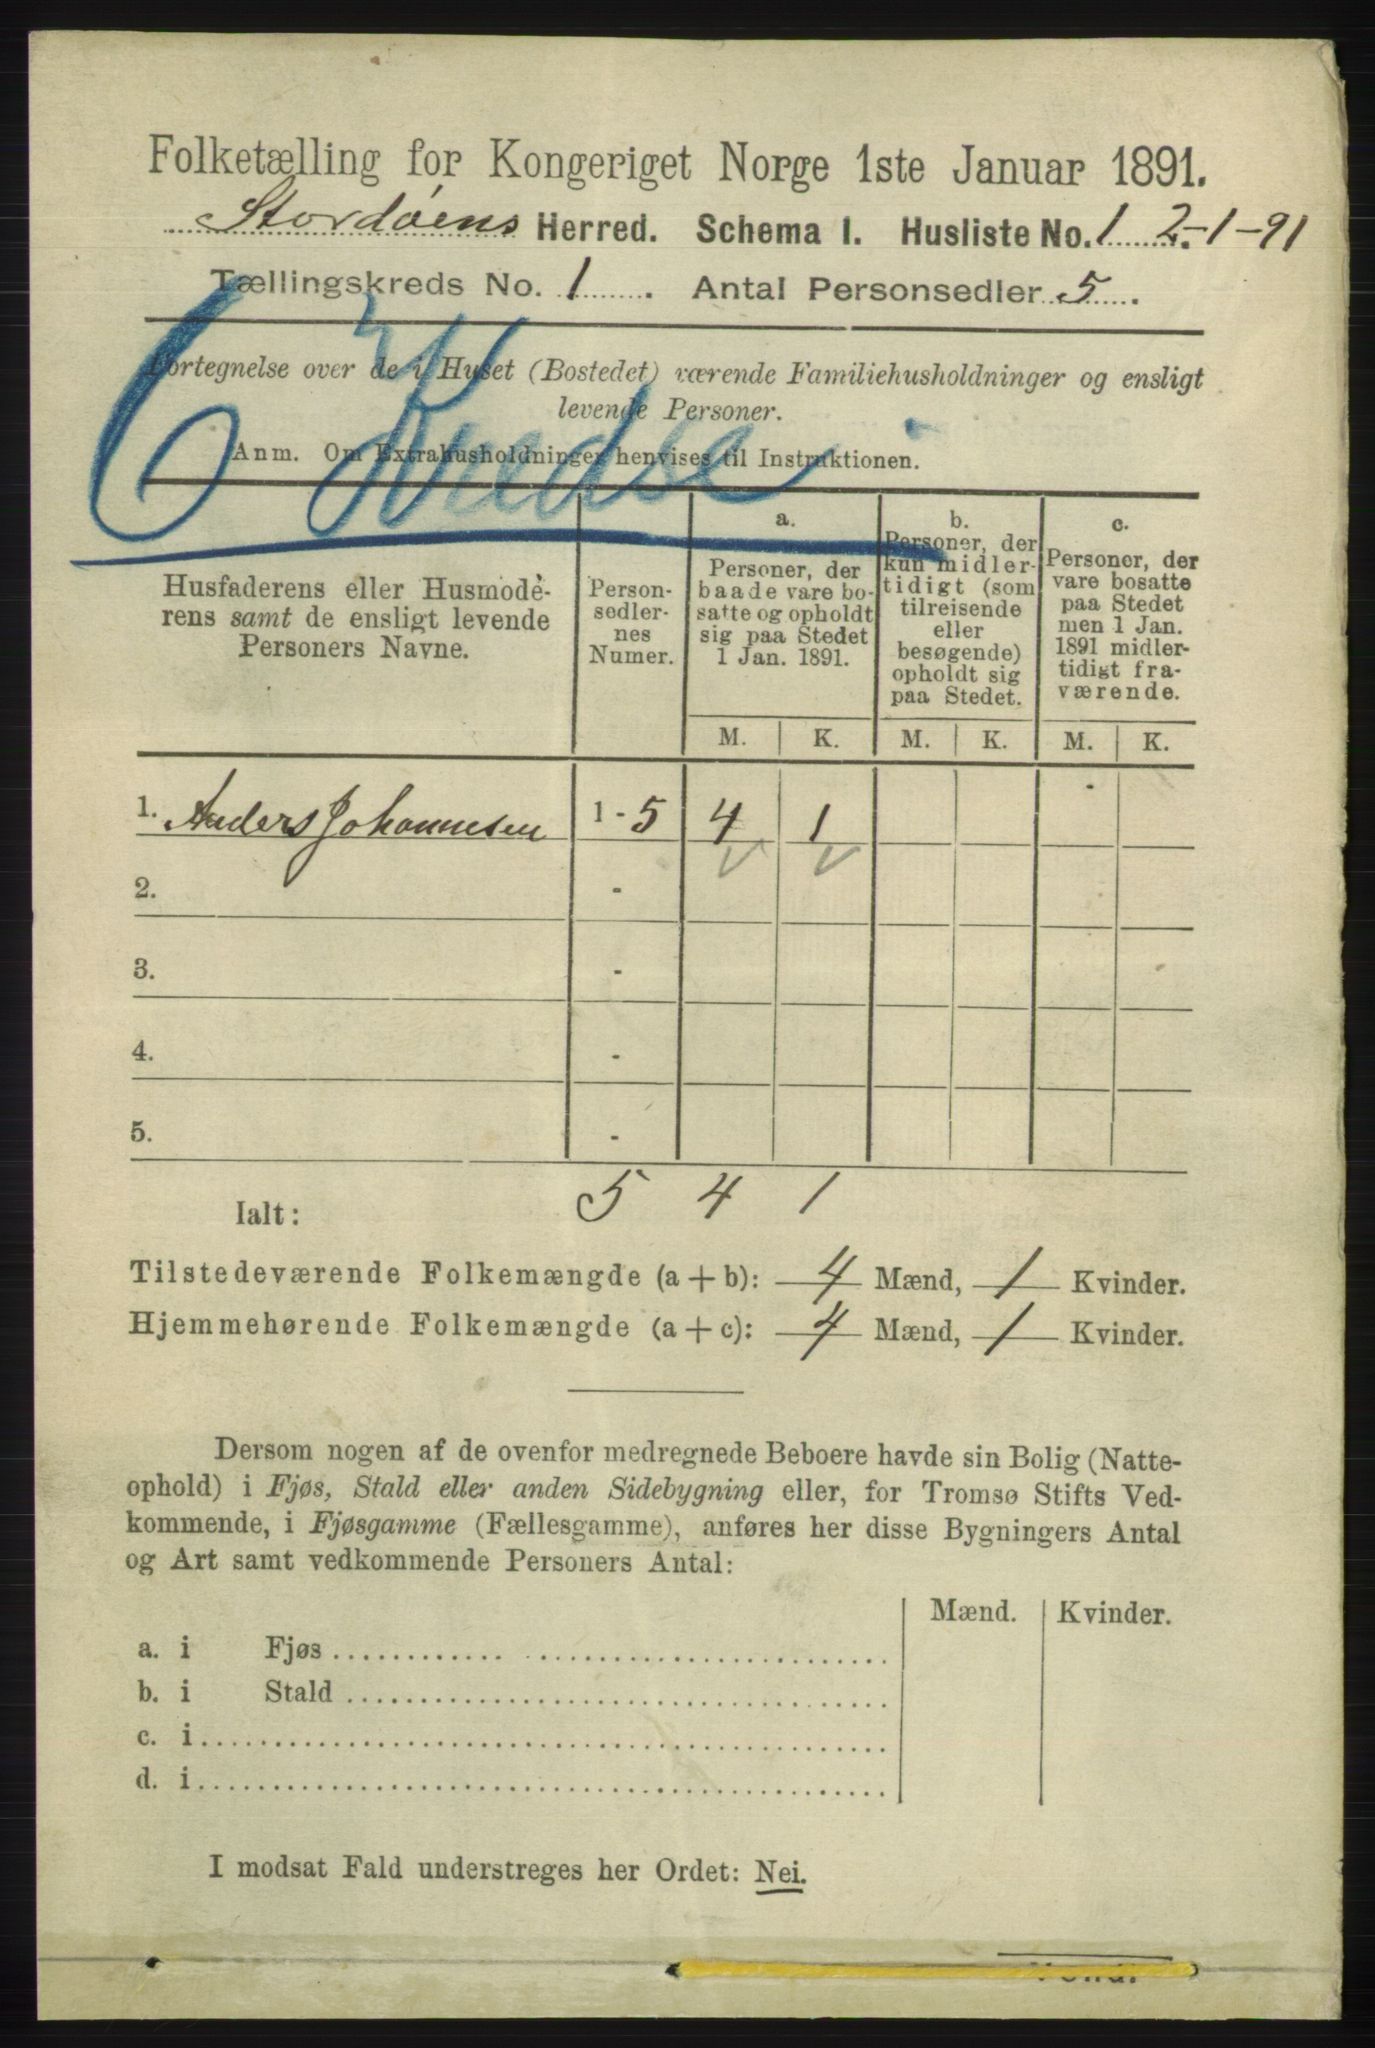 Folketælling for Kongeriget Norge 1ste Januar 1891.
Stordøens Herred. Schema I. Husliste No. 1 2-1-91
Tællingskreds No. 1. Antal Personsedler 5.
Fortegnelse over de i Huset (Bostedet) værende Familiehusholdninger og ensligt
levende Personer.
Anm. Om Extrahusholdninger henvises til Instruktionen.
6 Kredse
Husfaderens eller Husmode-
rens samt de ensligt levende
Personers Navne.
Person-
sedler-
nes
Numer.
a.
Personer, der
baade vare bo-
satte og opholdt
sig paa Stedet
1 Jan. 1891.
b.
Personer, der
kun midler-
tidigt (som
tilreisende
eller
besøgende)
opholdt sig
paa Stedet.
c.
Personer, der
vare bosatte
paa Stedet
men 1 Jan.
1891 midler-
tidigt fra-
værende.
M. K. M. K. M. K.
1. Anders Johannesen 1 - 5 4 1
2. -
3. -
4. -
5. -
Ialt: 5 4 1
Tilstedeværende Folkemængde (a + b): 4 Mænd, 1 Kvinder.
Hjemmehørende Folkemængde (a + c): 4 Mænd, 1 Kvinder.
Dersom nogen af de ovenfor medregnede Beboere havde sin Bolig (Natte-
ophold) i Fjøs, Stald eller anden Sidebygning eller, for Tromsø Stifts Ved-
kommende, i Fjøsgamme (Fællesgamme), anføres her disse Bygningers Antal
og Art samt vedkommende Personers Antal:
Mænd. Kvinder.
a. i Fjøs
b. i Stald
c. i
d. i
I modsat Fald understreges her Ordet: Nei.
Vend.